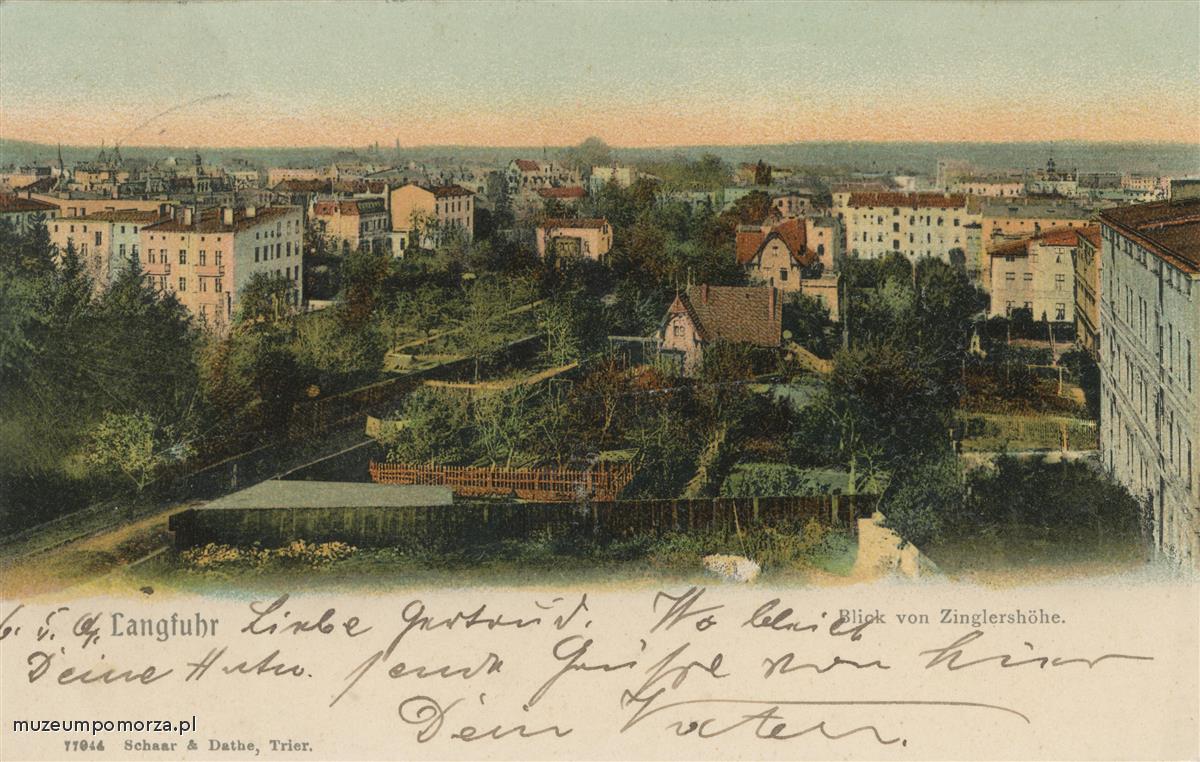 6. 5. 04. Langfuhr Liebe Gertrud. Wo bleibt Blick von Zinglershöhe.
Deine sende Grüße von hier
Dein Vater.
muzeumpomorza.pl
77944 Schaar & Dathe, Trier.